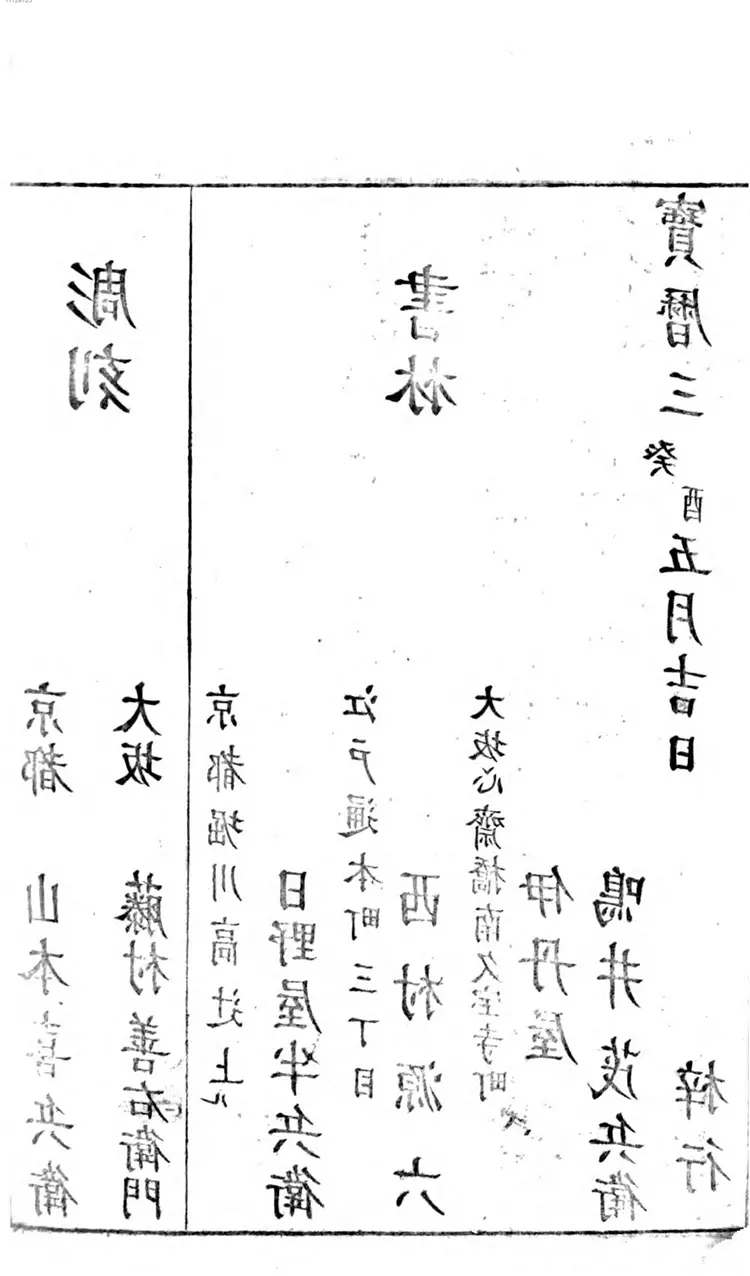 彫刻
京都　山本喜兵衛
大坂　藤村善右衛門
書林
京都堀川高辻上ル
日野屋半兵衛
江戸通本町三丁目
西村源六
大坂心齋橋南久宝寺町
伊丹屋
鳴井茂兵衛
寳暦三癸酉五月吉日　梓行